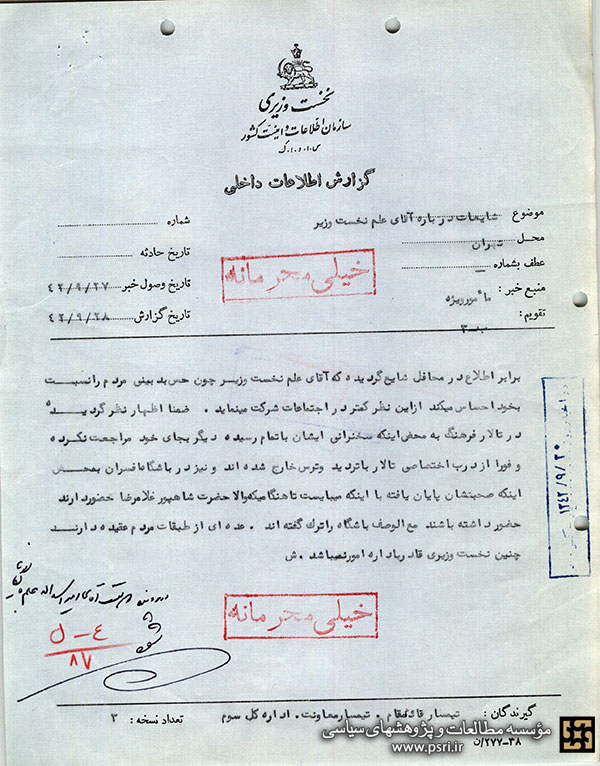 نخست وزیری
سازمان اطلاعات و امنیت کشور
س.ا.و.ا.ک
گزارش اطلاعات داخلی
موضوع شایعات درباره آقای علم نخست وزیر
شماره
محل تهران
تاریخ حادثه
عطف بشماره —
خیلی محرمانه
منبع خبر: مأمور ویژه
تاریخ وصول خبر ۴۲/۹/۲۷
تقویم: ب-۳
تاریخ گزارش ۴۲/۹/۲۸
برابر اطلاع در محافل شایع گردیده که آقای علم نخست وزیر چون حس بدبینی مردم را نسبت
بخود احساس میکند ازاین نظر کمتر در اجتماعات شرکت مینماید . ضمنا اظهار نظر گردیده
در تالار فرهنگ به محض اینکه سخنرانی ایشان باتمام رسیده دیگر بجای خود مراجعت نکرده
و فورا از درب اختصاصی تالار با تردید وترس خارج شده اند و نیز در باشگاه افسران بمحض
اینکه صحبتشان پایان یافته با اینکه میبایست تا هنگامیکه والا حضرت شاهپور غلامرضا حضور دارند
حضور داشته باشند مع الوصف باشگاه را ترک گفته اند . عده ای از طبقات مردم عقیده دارند
چنین نخست وزیری قادر باداره امور نمیباشد . ش
۱۳۴۲/۹/۳۰
خیلی محرمانه
۴ - ل
۸۷
گیرندگان: تیمسار قائم مقام . تیمسار معاونت . اداره کل سوم
تعداد نسخه: ۳
مؤسسه مطالعات و پژوهشهای سیاسی
www.psri.ir
۳۸-۲۷۷/ن